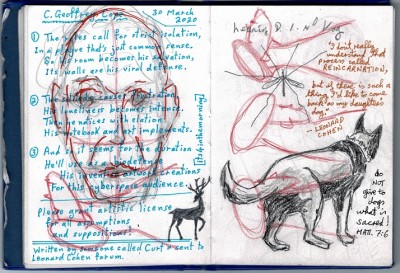 C. Geoffrey
30 March
2020
① The rules call for strict isolation,
In a plague that's just common sense.
So his room becomes his salvation,
Its walls are his viral defense.
②
His loneliness becomes intense.
Then he dices with elation
His notebook and art implements.
[1st 6 in the morning]
③ And so it seems for the duration
He'll use as a biodefense
His inventive artwork creations
For this cyberspace audience.
Please grant artistic license
for all assumptions
and suppositions!
Written by someone called Curt & sent to
Leonard Cohen forum.
"I don't really
understand that
process called
REINCARNATION,
but if there is such a
thing I'd like to come
back as my daughter's
dog."
— LEONARD
COHEN
do
NOT
give to
dogs
what is
sacred!
MATT. 7:6